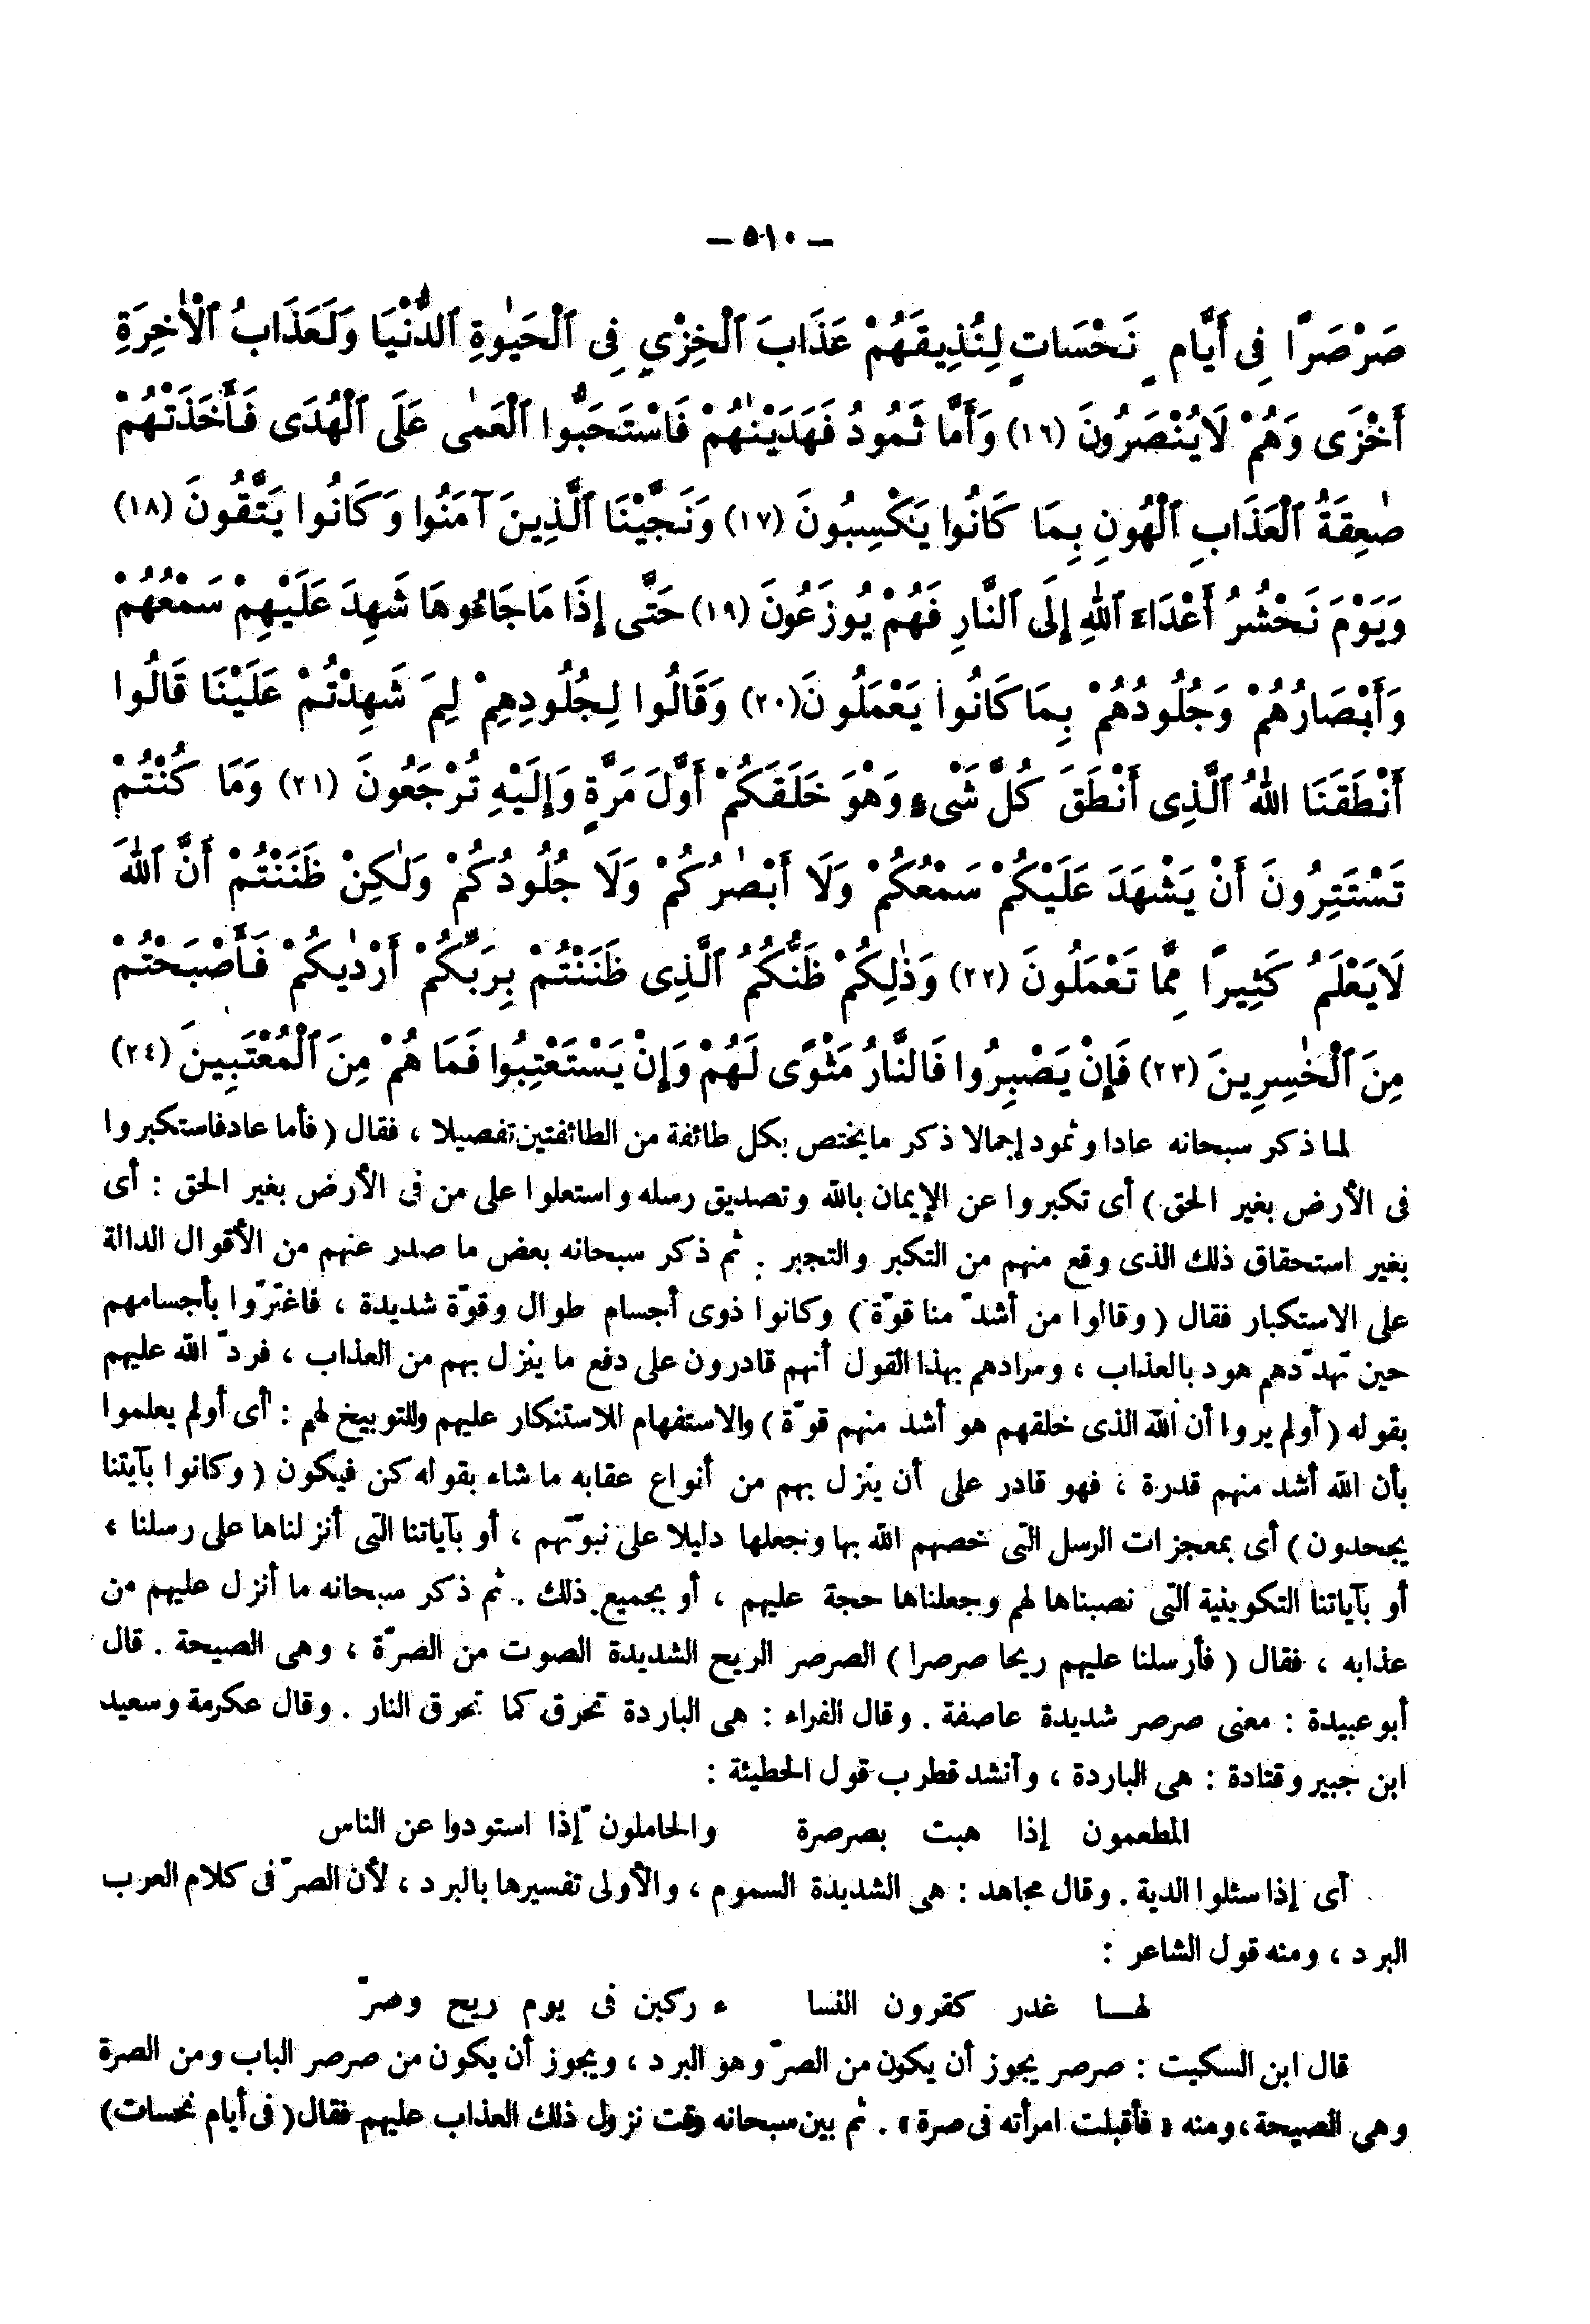 — ٥١٠ —
صَرْصَرًا فِى أَيَّامٍ نَحْسَاتٍ لِنُذِيقَهُمْ عَذَابَ ٱلْخِزْيِ فِى ٱلْحَيٰوةِ ٱلدُّنْيَا وَلَعَذَابُ ٱلْأٰخِرَةِ
أَخْزَى وَهُمْ لَايُنْصَرُونَ (١٦) وَأَمَّا ثَمُودُ فَهَدَيْنٰهُمْ فَاسْتَحَبُّوا ٱلْعَمٰى عَلَى ٱلْهُدَى فَأَخَذَتْهُمْ
صٰعِقَةُ ٱلْعَذَابِ ٱلْهُونِ بِمَا كَانُوا يَكْسِبُونَ (١٧) وَنَجَّيْنَا ٱلَّذِينَ آمَنُوا وَكَانُوا يَتَّقُونَ (١٨)
وَيَوْمَ نَحْشُرُ أَعْدَاءَ ٱللهِ إِلَى ٱلنَّارِ فَهُمْ يُوزَعُونَ (١٩) حَتَّى إِذَا مَاجَاءُوهَا شَهِدَ عَلَيْهِمْ سَمْعُهُمْ
وَأَبْصَارُهُمْ وَجُلُودُهُمْ بِمَاكَانُوا يَعْمَلُونَ(٢٠) وَقَالُوا لِجُلُودِهِمْ لِمَ شَهِدْتُمْ عَلَيْنَا قَالُوا
أَنْطَقَنَا اللهُ ٱلَّذِى أَنْطَقَ كُلَّ شَىْءٍ وَهْوَ خَلَقَكُمْ أَوَّلَ مَرَّةٍ وَإِلَيْهِ تُرْجَعُونَ (٢١) وَمَا كُنْتُمْ
تَسْتَتِرُونَ أَنْ يَشْهَدَ عَلَيْكُمْ سَمْعُكُمْ وَلَا أَبْصٰرُكُمْ وَلَا جُلُودُكُمْ وَلٰكِنْ ظَنَنْتُمْ أَنَّ ٱللهَ
لَايَعْلَمُ كَثِيرًا مِمَّا تَعْمَلُونَ (٢٢) وَذٰلِكُمْ ظَنُّكُمُ ٱلَّذِى ظَنَنْتُمْ بِرَبِّكُمْ أَرْدٰيكُمْ فَأَصْبَحْتُمْ
مِنَ ٱلْخٰسِرِينَ (٢٣) فَإِنْ يَصْبِرُوا فَالنَّارُ مَثْوًى لَهُمْ وَإِنْ يَسْتَعْتِبُوا فَمَا هُمْ مِنَ ٱلْمُعْتَبِينَ (٢٤)
لما ذكر سبحانه عادا وثمود إجمالا ذكر مايختص بكل طائفة من الطائفتين تفصيلا ، فقال ( فأما عاد فاستكبروا
فى الأرض بغير الحق ) أى تكبروا عن الإيمان بالله وتصديق رسله واستعلوا على من فى الأرض بغير الحق : أى
بغير استحقاق ذلك الذى وقع منهم من التكبر والتجبر . ثم ذكر سبحانه بعض ما صدر عنهم من الأقوال الدالة
على الاستكبار فقال ( وقالوا من أشدّ منا قوّة ) وكانوا ذوى أجسام طوال وقوّة شديدة ، فاغترّوا بأجسامهم
حين تهدّدهم هود بالعذاب ، ومرادهم بهذا القول أنهم قادرون على دفع ما ينزل بهم من العذاب ، فردّ الله عليهم
بقوله ( أولم يروا أن الله الذى خلقهم هو أشد منهم قوّة ) والاستفهام للاستنكار عليهم وللتوبيخ لهم : أى أولم يعلموا
بأن الله أشد منهم قدرة ، فهو قادر على أن ينزل بهم من أنواع عقابه ماشاء بقوله كن فيكون ( وكانوا بآيتنا
يجحدون ) أى بمعجزات الرسل التى خصهم الله بها وجعلها دليلا على نبوّتهم ، أو بآياتنا التى أنزلناها على رسلنا ،
أو بآياتنا التكوينية التى نصبناها لهم وجعلناها حجة عليهم ، أو بجميع ذلك . ثم ذكر سبحانه ما أنزل عليهم من
عذابه ، فقال ( فأرسلنا عليهم ريحا صرصرا ) الصرصر الريح الشديدة الصوت من الصرّة ، وهى الصيحة . قال
أبو عبيدة : معنى صرصر شديدة عاصفة . وقال الفراء : هى الباردة تحرق كما تحرق النار . وقال عكرمة وسعيد
ابن جبير وقتادة : هى الباردة ، وأنشد قطرب قول الحطيئة :
المطعمون إذا هبت بصرصرة والحاملون إذا استودوا عن الناس
أى إذا سئلوا الدية . وقال مجاهد : هى الشديدة السموم ، والأولى تفسيرها بالبرد ، لأن الصرّ فى كلام العرب
البرد ، ومنه قول الشاعر :
لهـــا غدر كقرون النسا ء ركبن فى يوم ريح وصرّ
قال ابن السكيت : صرصر يجوز أن يكون من الصرّ وهو البرد ، ويجوز أن يكون من صرصر الباب ومن الصرة
وهى الصيحة ، ومنه « فأقبلت امرأته فى صرة » . ثم بين سبحانه وقت نزول ذلك العذاب عليهم فقال ( فى أيام نحسات )